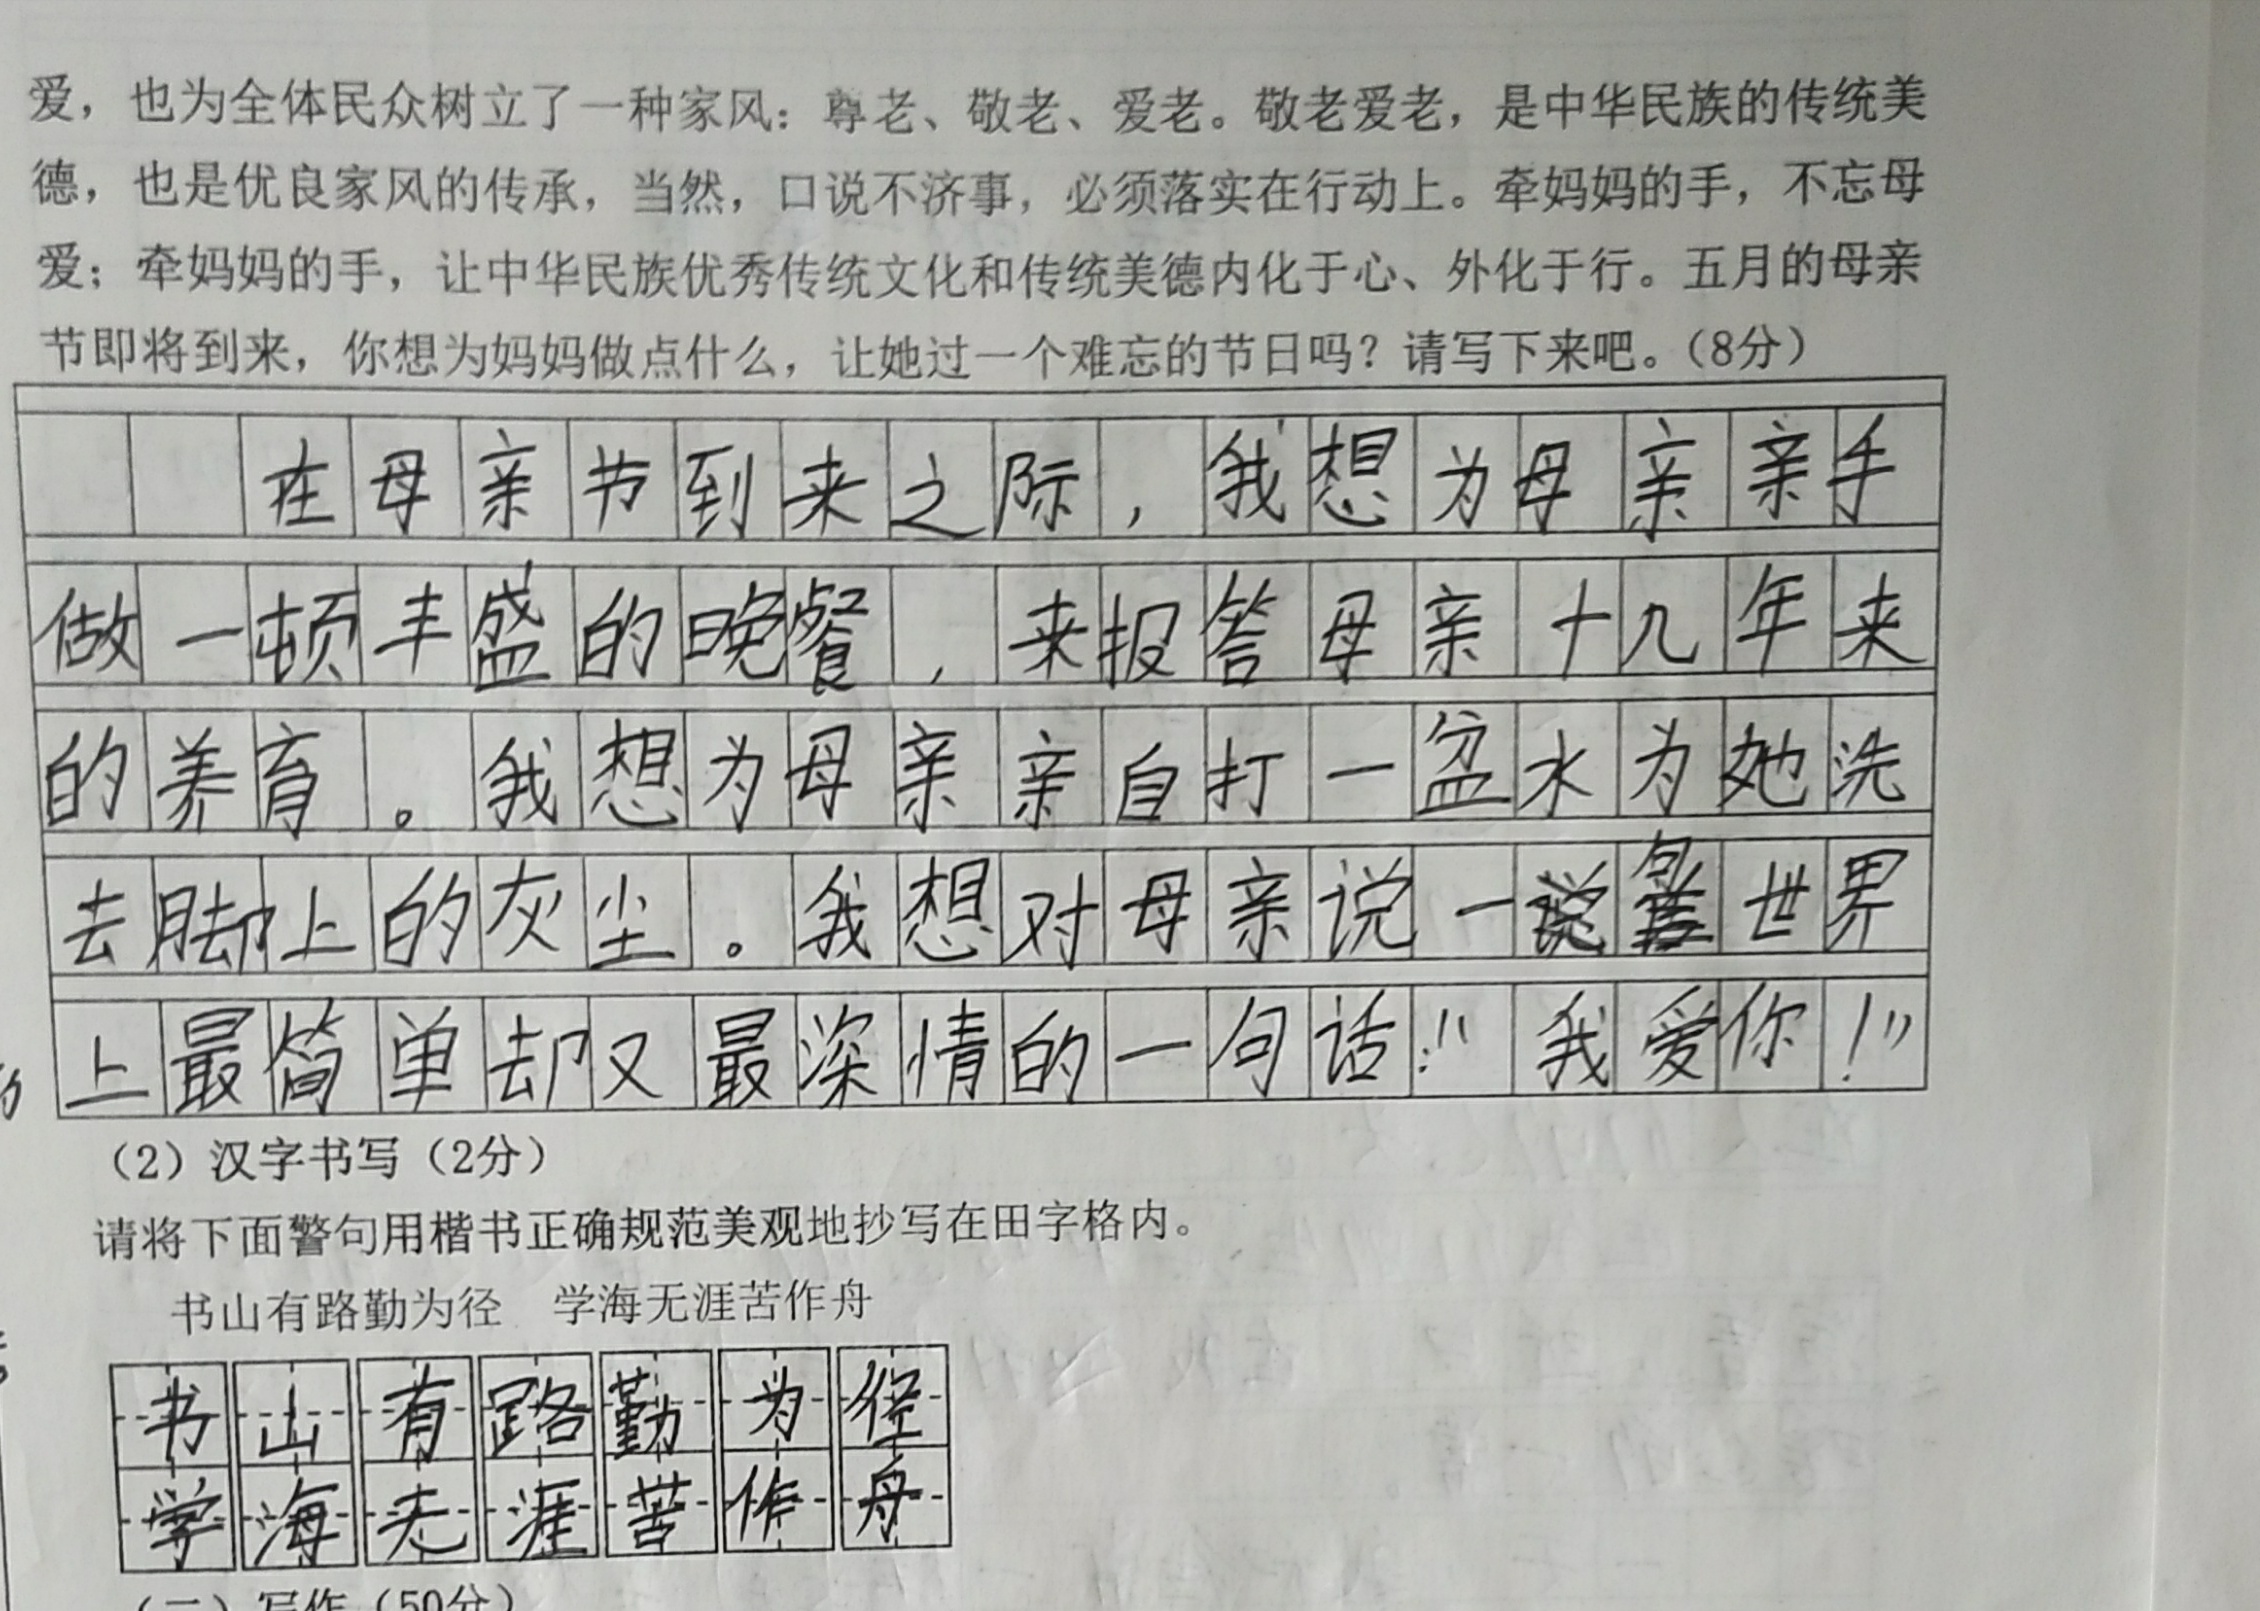 爱，也为全体民众树立了一种家风：尊老、敬老、爱老。敬老爱老，是中华民族的传统美
德，也是优良家风的传承，当然，口说不济事，必须落实在行动上。牵妈妈的手，不忘母
爱；牵妈妈的手，让中华民族优秀传统文化和传统美德内化于心、外化于行。五月的母亲
节即将到来，你想为妈妈做点什么，让她过一个难忘的节日吗？请写下来吧。（8分）
在母亲节到来之际，我想为母亲亲手
做一顿丰盛的晚餐，来报答母亲十九年来
的养育。我想为母亲亲自打一盆水为她洗
去脚上的灰尘。我想对母亲说一句世界
上最简单却又最深情的一句话：“我爱你！”
（2）汉字书写（2分）
请将下面警句用楷书正确规范美观地抄写在田字格内。
书山有路勤为径　学海无涯苦作舟
书山有路勤为径
学海无涯苦作舟
（二）写作（50分）